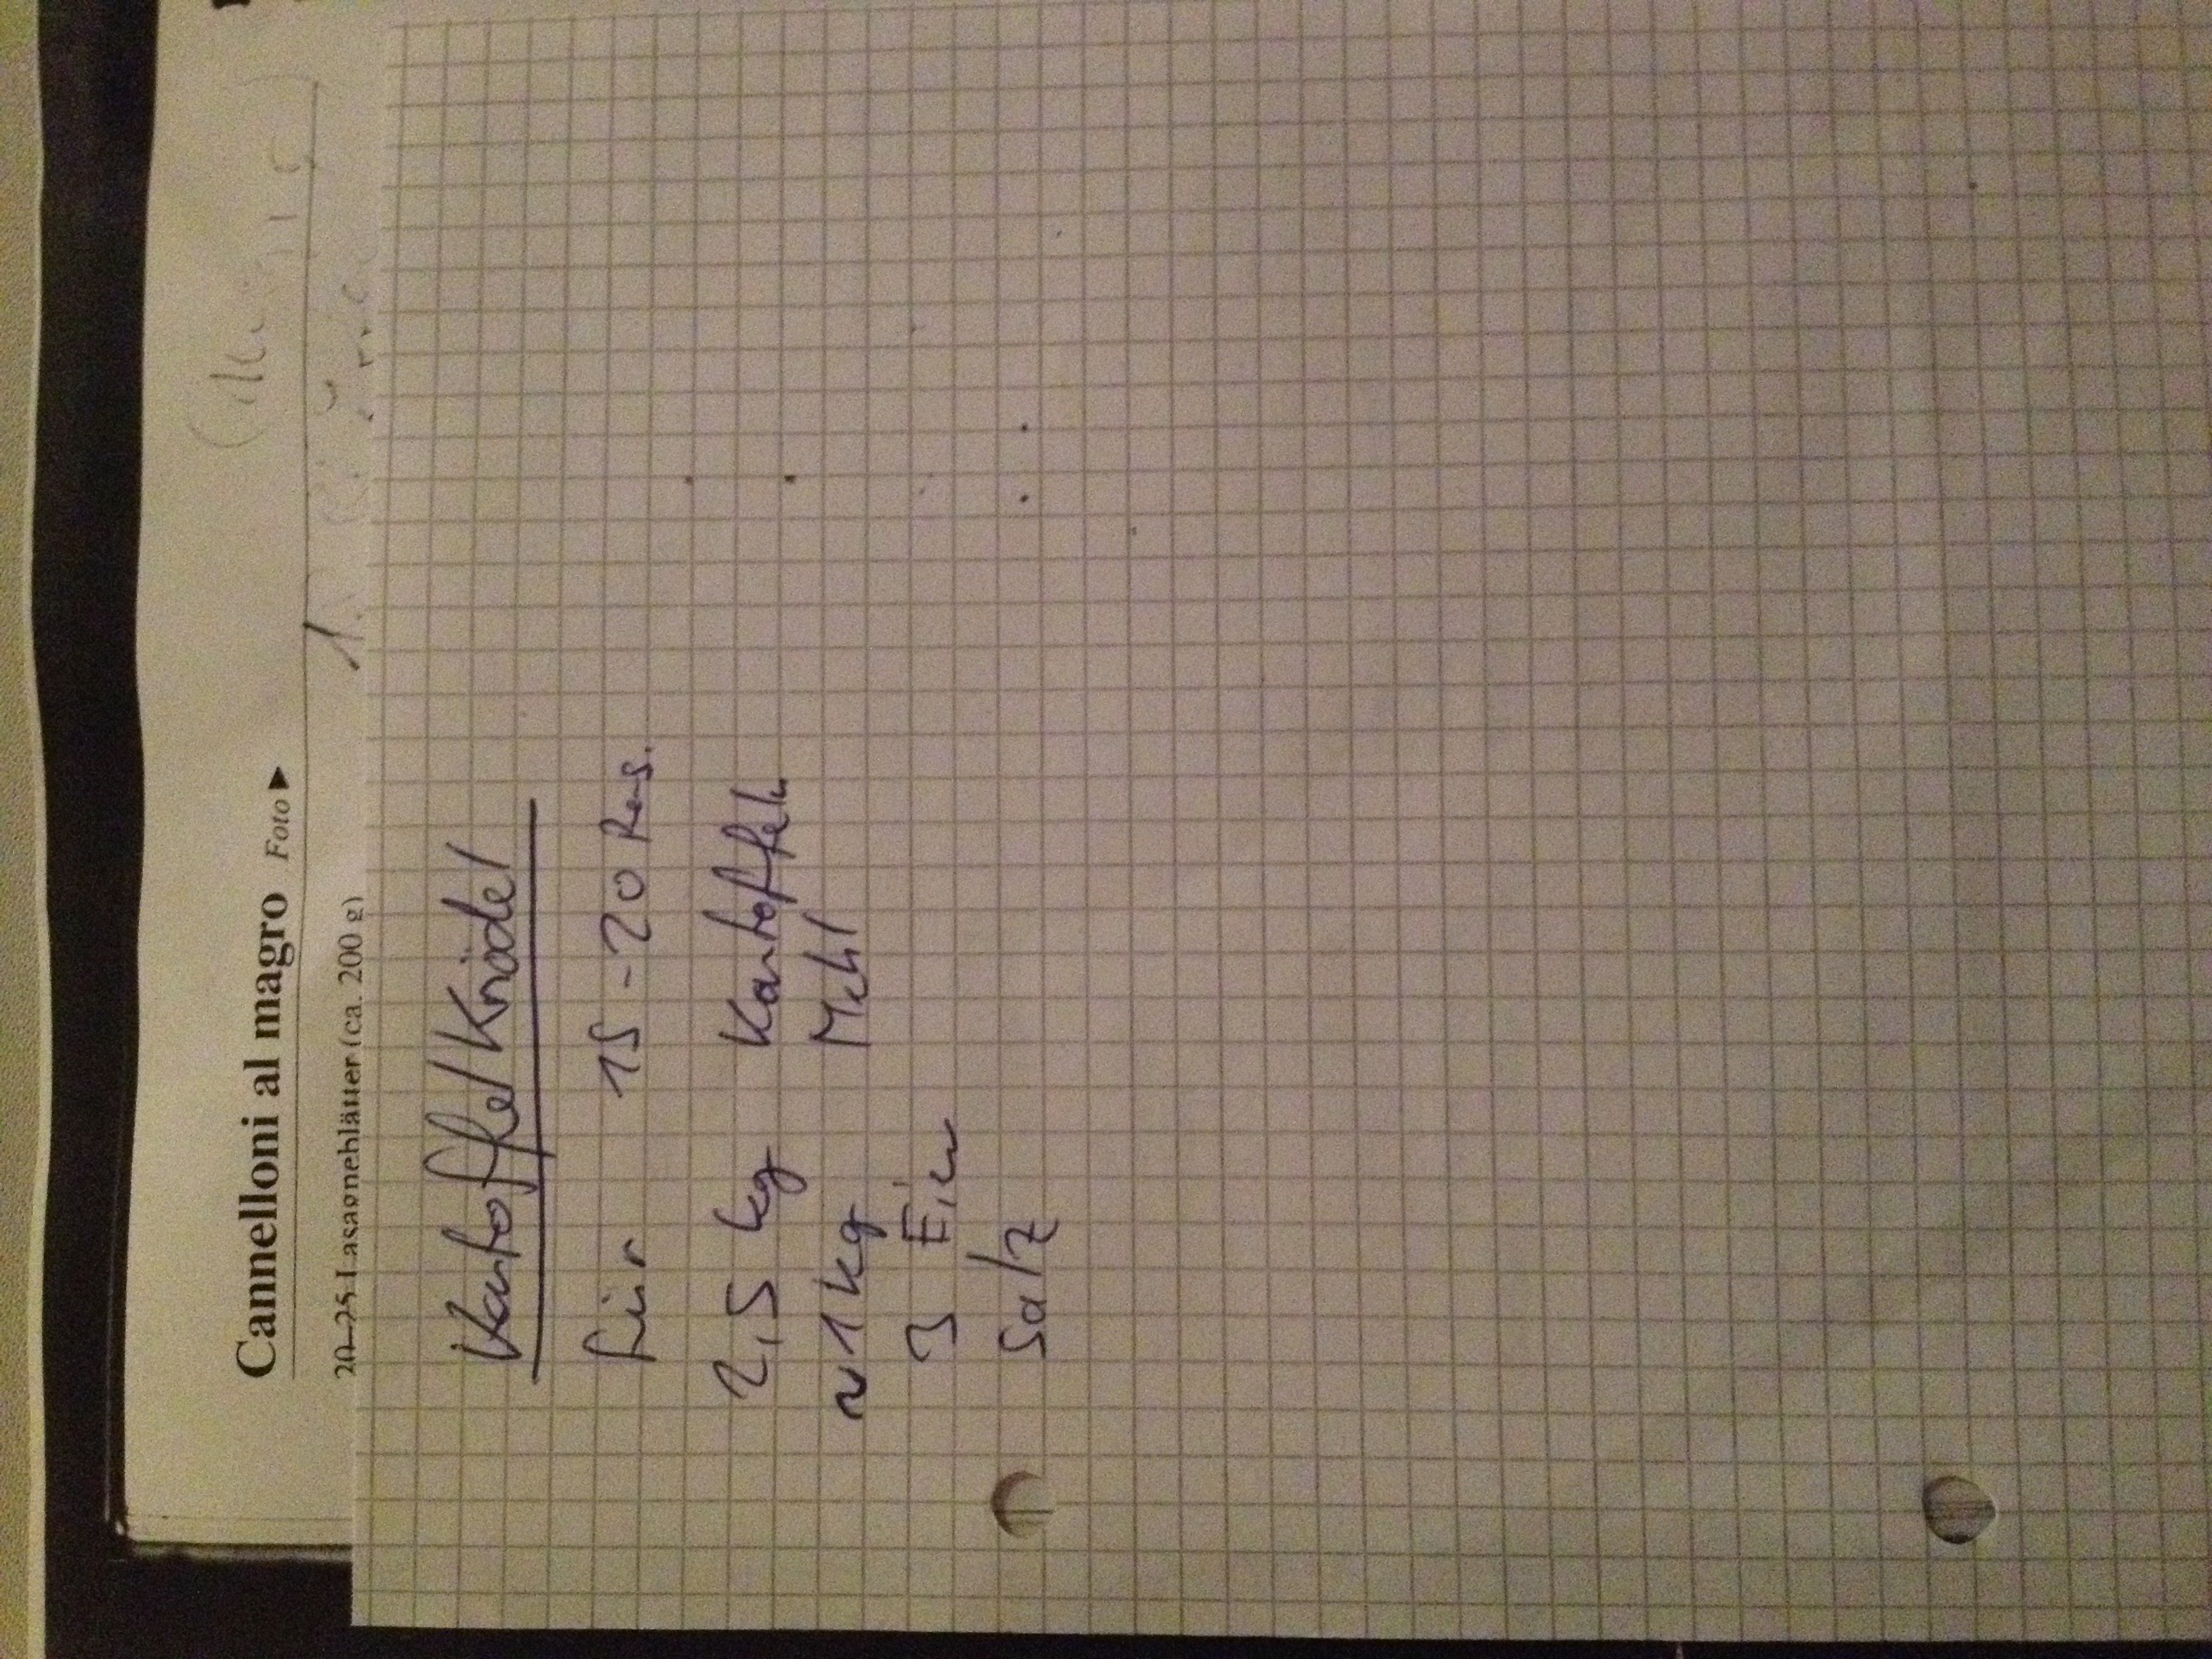 Cannelloni al magro Foto ►
20–25 Lasagneblätter (ca. 200 g)
1.
Kartoffel Knödel
für 15-20 Pers.
2,5 kg Kartoffeln
~1kg Mehl
3 Eier
Salz